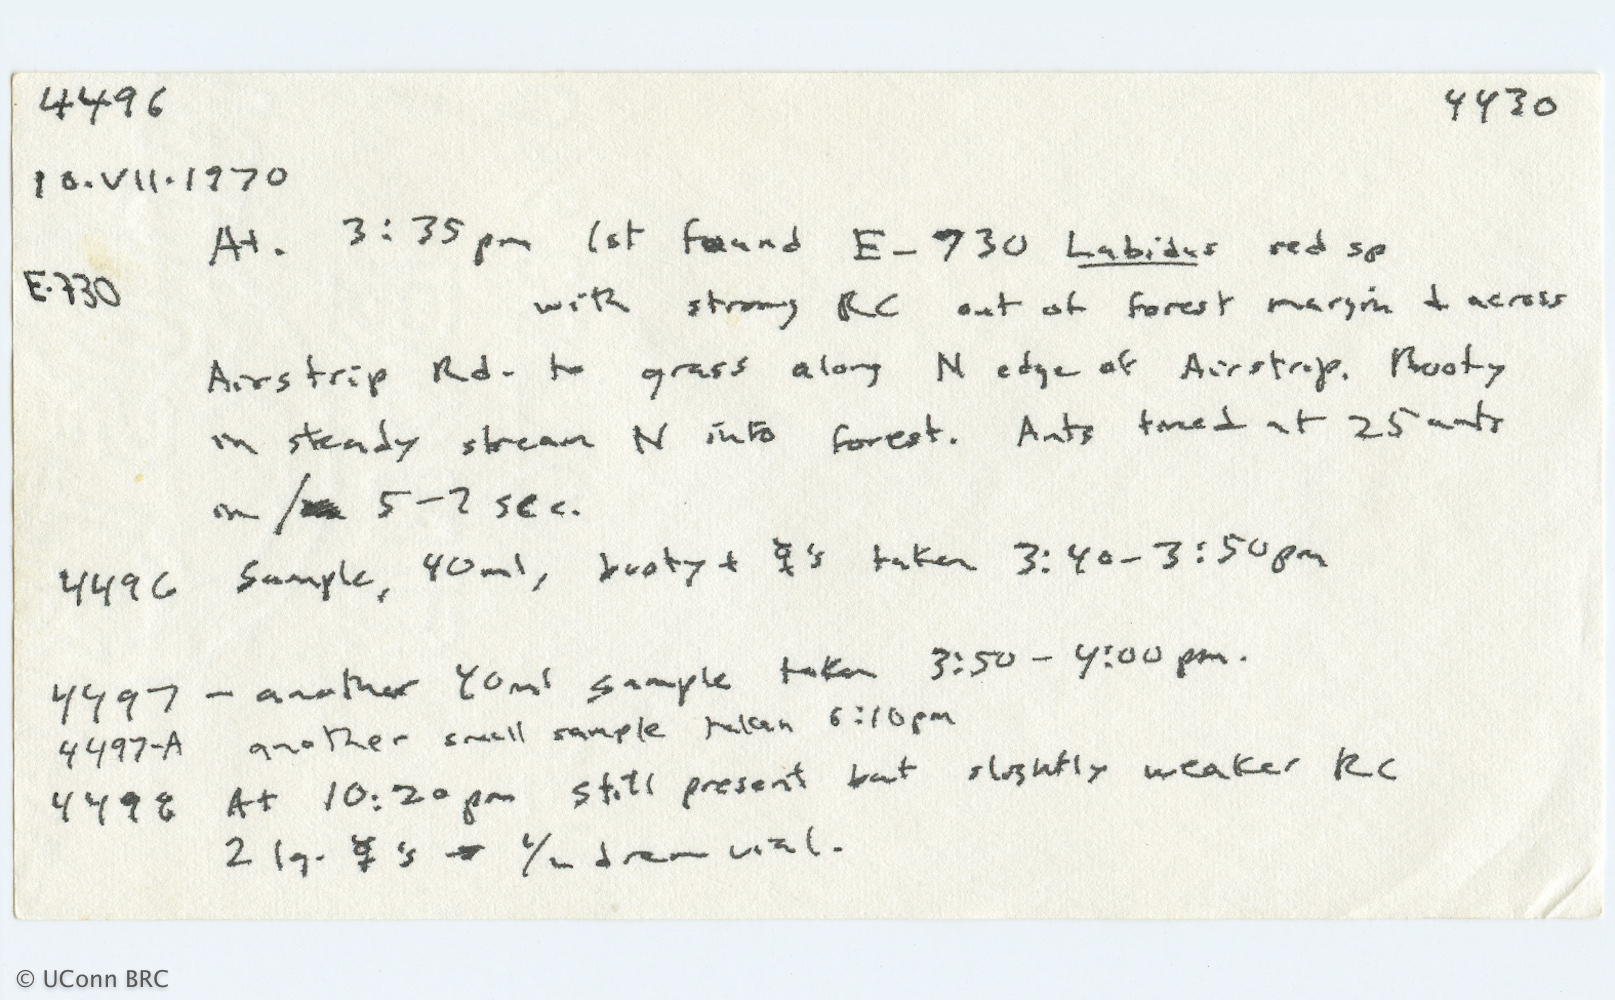 4496 4430
10.VII.1970
At. 3:35pm 1st found E-730 Labidus red sp
E-730
with strong RC out of forest margin + across
Airstrip Rd. to grass along N edge of Airstrip. Booty
in steady stream N into forest. Ants timed at 25 ants
in 5-7 sec.
4496 Sample, 40ml, booty + ☿'s taken 3:40-3:50pm
4497 - another 40ml sample taken 3:50-4:00pm.
4497-A another small sample taken 6:10pm
4498 At 10:20pm still present but slightly weaker RC
2 lg. ☿'s dram vial.
© UConn BRC